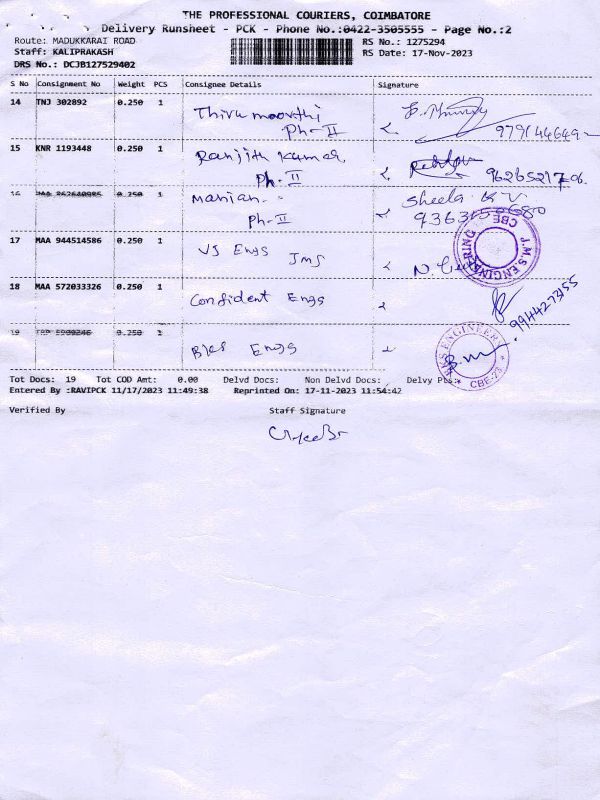 THE PROFESSIONAL COURIERS, COIMBATORE
Delivery Runsheet - PCK - Phone No.:0422-3505555 - Page No.:2
Route: MADUKKARAI ROAD
RS No.: 1275294
Staff: KALIPRAKASH
RS Date: 17-Nov-2023
DRS No.: DCJB127529402
S No Consignment No Weight PCS Consignee Details Signature
14 TNJ 302892 0.250 1 Thirumoorthi
Ph-II
9791446692
15 KNR 1193448 0.250 1 Ranjith Kumar
Ph-II
9626521706
16 0.250 1 Manian
Ph-II
Sheela K V
9363150680
17 MAA 944514586 0.250 1 VJ Engs Jms
P.M.S. ENGINEERING CBE
18 MAA 572033326 0.250 1 Confident Engs
9944273155
19 0.250 1 Engs
ENGINEERS CBE-23
Tot Docs: 19 Tot COD Amt: 0.00 Delvd Docs: Non Delvd Docs: Delvy Pts:
Entered By :RAVIPCK 11/17/2023 11:49:38 Reprinted On: 17-11-2023 11:54:42
Verified By Staff Signature